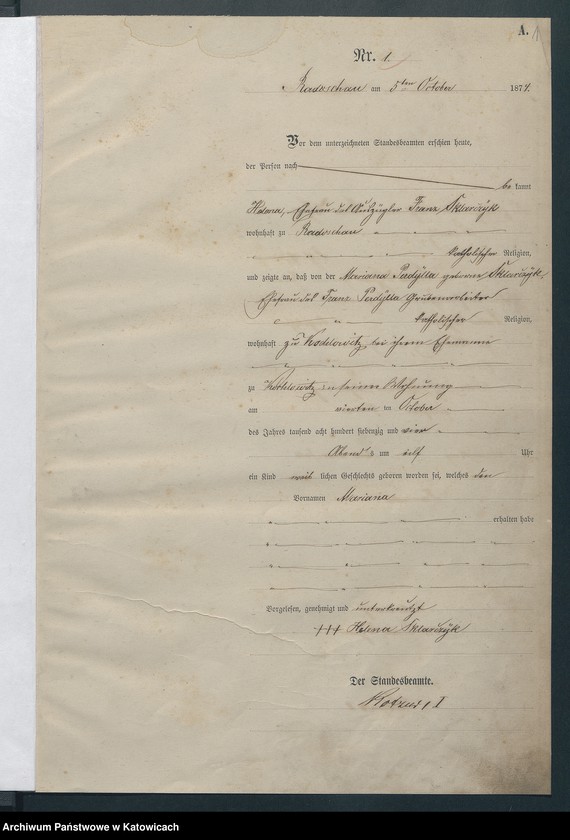 A. 1
Nr. 1.
Radoschau am 5ten October 1874.
Vor dem unterzeichneten Standesbeamten erschien heute,
der Person nach
be kannt
Helena, Ehefrau des Auszügler Franz Sklarczyk
wohnhaft zu Radoschau
katholischer Religion,
und zeigte an, daß von der Mariana geborene Sklarczyk,
Ehefrau des Franz Grubenarbeiter
katholischer Religion,
wohnhaft zu bei ihrem Ehemanne
zu in seiner Wohnung
am vierten ten October
des Jahres tausend acht hundert siebenzig und vier
Abends um elf Uhr
ein Kind weib lichen Geschlechts geboren worden sei, welches den
Vornamen Mariana
erhalten habe
Vorgelesen, genehmigt und unterkreuzt
+++ Helena Sklarczyk
Der Standesbeamte.
Archiwum Państwowe w Katowicach